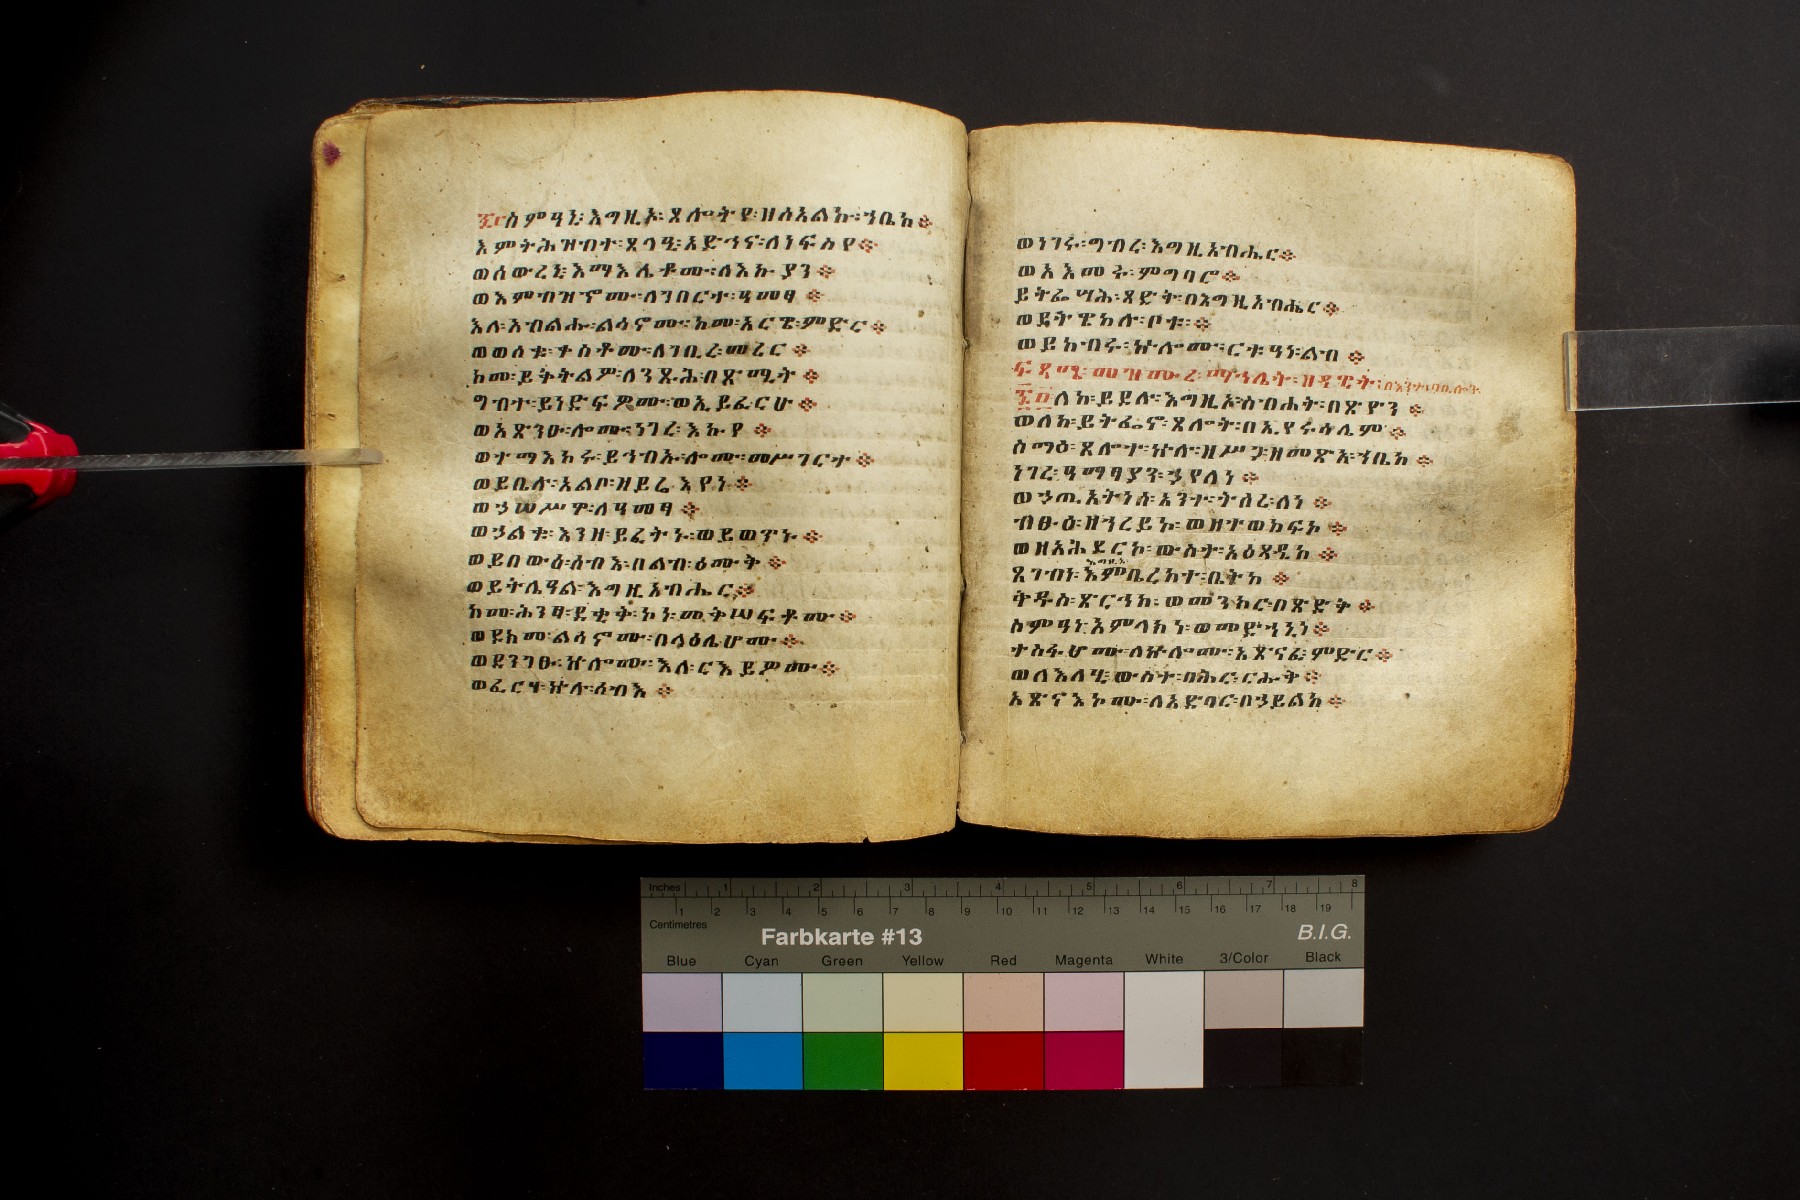 ፷፫ ስምዓኒ፡ እግዚኦ፡ ጸሎትየ፡ ዘሰአልኩ፡ ኀቤከ፨
እምትሕዝብተ፡ ጸላዒ፡ አድኅና፡ ለነፍስየ፨
ወሰውረኒ፡ እማእሌቶሙ፡ ለእኩያን፨
ወእምብዝኆሙ፡ ለገበርተ፡ ዓመፃ፨
እለ፡ አብልሑ፡ ልሳኖሙ፡ ከመ፡ አርዌ፡ ምድር፨
ወወሰቁ፡ ቀስቶሙ፡ ለገቢረ፡ መሪር፨
ከመ፡ ይትትልዎ፡ ለንጹሕ፡ በጽሚት፨
ግብተ፡ ይነድፍዎሙ፡ ወኢይፈርሁ፨
ወአጽንዑ፡ ሎሙ፡ ነገረ፡ እኩየ፨
ወተማእከሩ፡ ይኅብኡ፡ ሎሙ፡ መሥገርተ፨
ወይቤሉ፡ አልቦ፡ ዘይሬእየነ፨
ወኃሠሥዋ፡ ለዓመፃ፨
ወኃልቁ፡ እንዘ፡ ይፈትኑ፡ ወይወጥኑ፨
ወይበውዕ፡ ሰብእ፡ በልብ፡ ዕሙቅ፨
ወይትሌዓል፡ እግዚአብሔር፨
ከመ፡ ሕንፃ፡ ደቂቅ፡ ኮነ፡ መቅሠፍቶሙ፨
ወደክመ፡ ልሳኖሙ፡ በላዕሌሆሙ፨
ወደንገፁ፡ ኵሎሙ፡ እለ፡ ርእይዎሙ፨
ወፈርሃ፡ ኵሉ፡ ሰብእ፨
ወነገሩ፡ ግብረ፡ እግዚአብሔር፨
ወአእመሩ፡ ምግባሮ፨
ይትፌሣሕ፡ ጻድቅ፡ በእግዚአብሔር፨
ወይትዌከል፡ ቦቱ፡፨
ወይከብሩ፡ ኵሎሙ፡ ርቱዓነ፡ ልብ፨
ፍጻሜ፡ መዝሙረ፡ ማኅሌት፡ ዘዳዊት፡
፷፬ ለከ፡ ይደሉ፡ እግዚኦ፡ ስብሐት፡ በጽዮን፨
ወለከ፡ ይትፌኖ፡ ጸሎት፡ በኢየሩሳሌም፨
ስማዕ፡ ጸሎተ፡ ኵሉ፡ ዘሥጋ፡ ዘመጽአ፡ ኀቤከ፨
ነገረ፡ ዓማፃያን፡ ኃየለነ፨
ወኃጢአትነሰ፡ አንተ፡ ትሰሪ፡ ለነ፨
ብፁዕ፡ ዘኀረይኮ፡ ወዘተወከፍኮ፨
ወዘአሕደርኮ፡ ውስተ፡ አዕጻዲከ፨
ጸገብነ፡ እምበረከተ፡ ቤትከ፨
ቅዱስ፡ ጽርሓከ፡ ወመንክር፡ በጽድቅ፨
ስምዓነ፡ አምላክነ፡ ወመድኃኒነ፨
ተስፋሆሙ፡ ለኵሎሙ፡ አጽናፈ፡ ምድር፨
ወለእለሂ፡ ውስተ፡ ባሕር፡ ርሑቅ፨
አጽናእኮሙ፡ ለአድባር፡ በኃይልከ፨
Inches 1 2 3 4 5 6 7 8
1 2 3 4 5 6 7 8 9 10 11 12 13 14 15 16 17 18 19
Centimetres
Farbkarte #13 B.I.G.
Blue Cyan Green Yellow Red Magenta White 3/Color Black